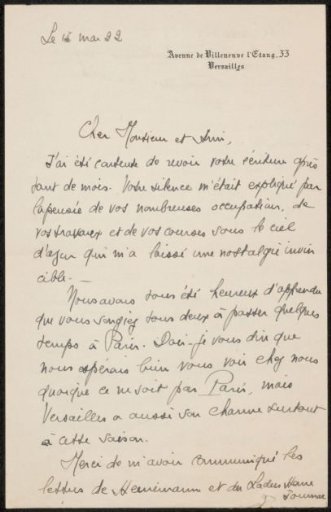 Le 12 mai 22
Avenue de Villeneuve l'Etang, 33
Versailles
Cher Monsieur et Ami,
J'ai été contente de revoir votre écriture après
tant de mois. Votre silence m'était expliqué par
la pensée de vos nombreuses occupation, de
vos travaux et de vos courses sous le ciel
d'azur qui m'a laissé une nostalgie invin
cible.
Nous avons tous été heureux d'apprendre
que vous songiez tous deux à passer quelques
temps à Paris. Dois-je vous dire que
nous espérons bien vous voir chez nous
quoique ce ne soit pas Paris, mais
Versailles a aussi son charme surtout
à cette saison.
Merci de m'avoir communiqué les
lettres de Heinemann et du Ladies Home
Journal